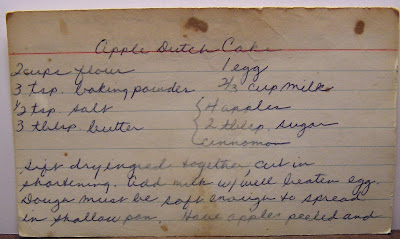 Apple Dutch Cake
2 cups flour 1 egg
3 tsp. baking powder 2/3 cup milk
1/2 tsp. salt 4 apples
3 tblsp. butter 2 tblsp. sugar
cinnamon
Sift dry ingred. together, cut in
shortening. Add milk w/ well beaten egg.
Dough must be soft enough to spread
in shallow pan. Have apples peeled and